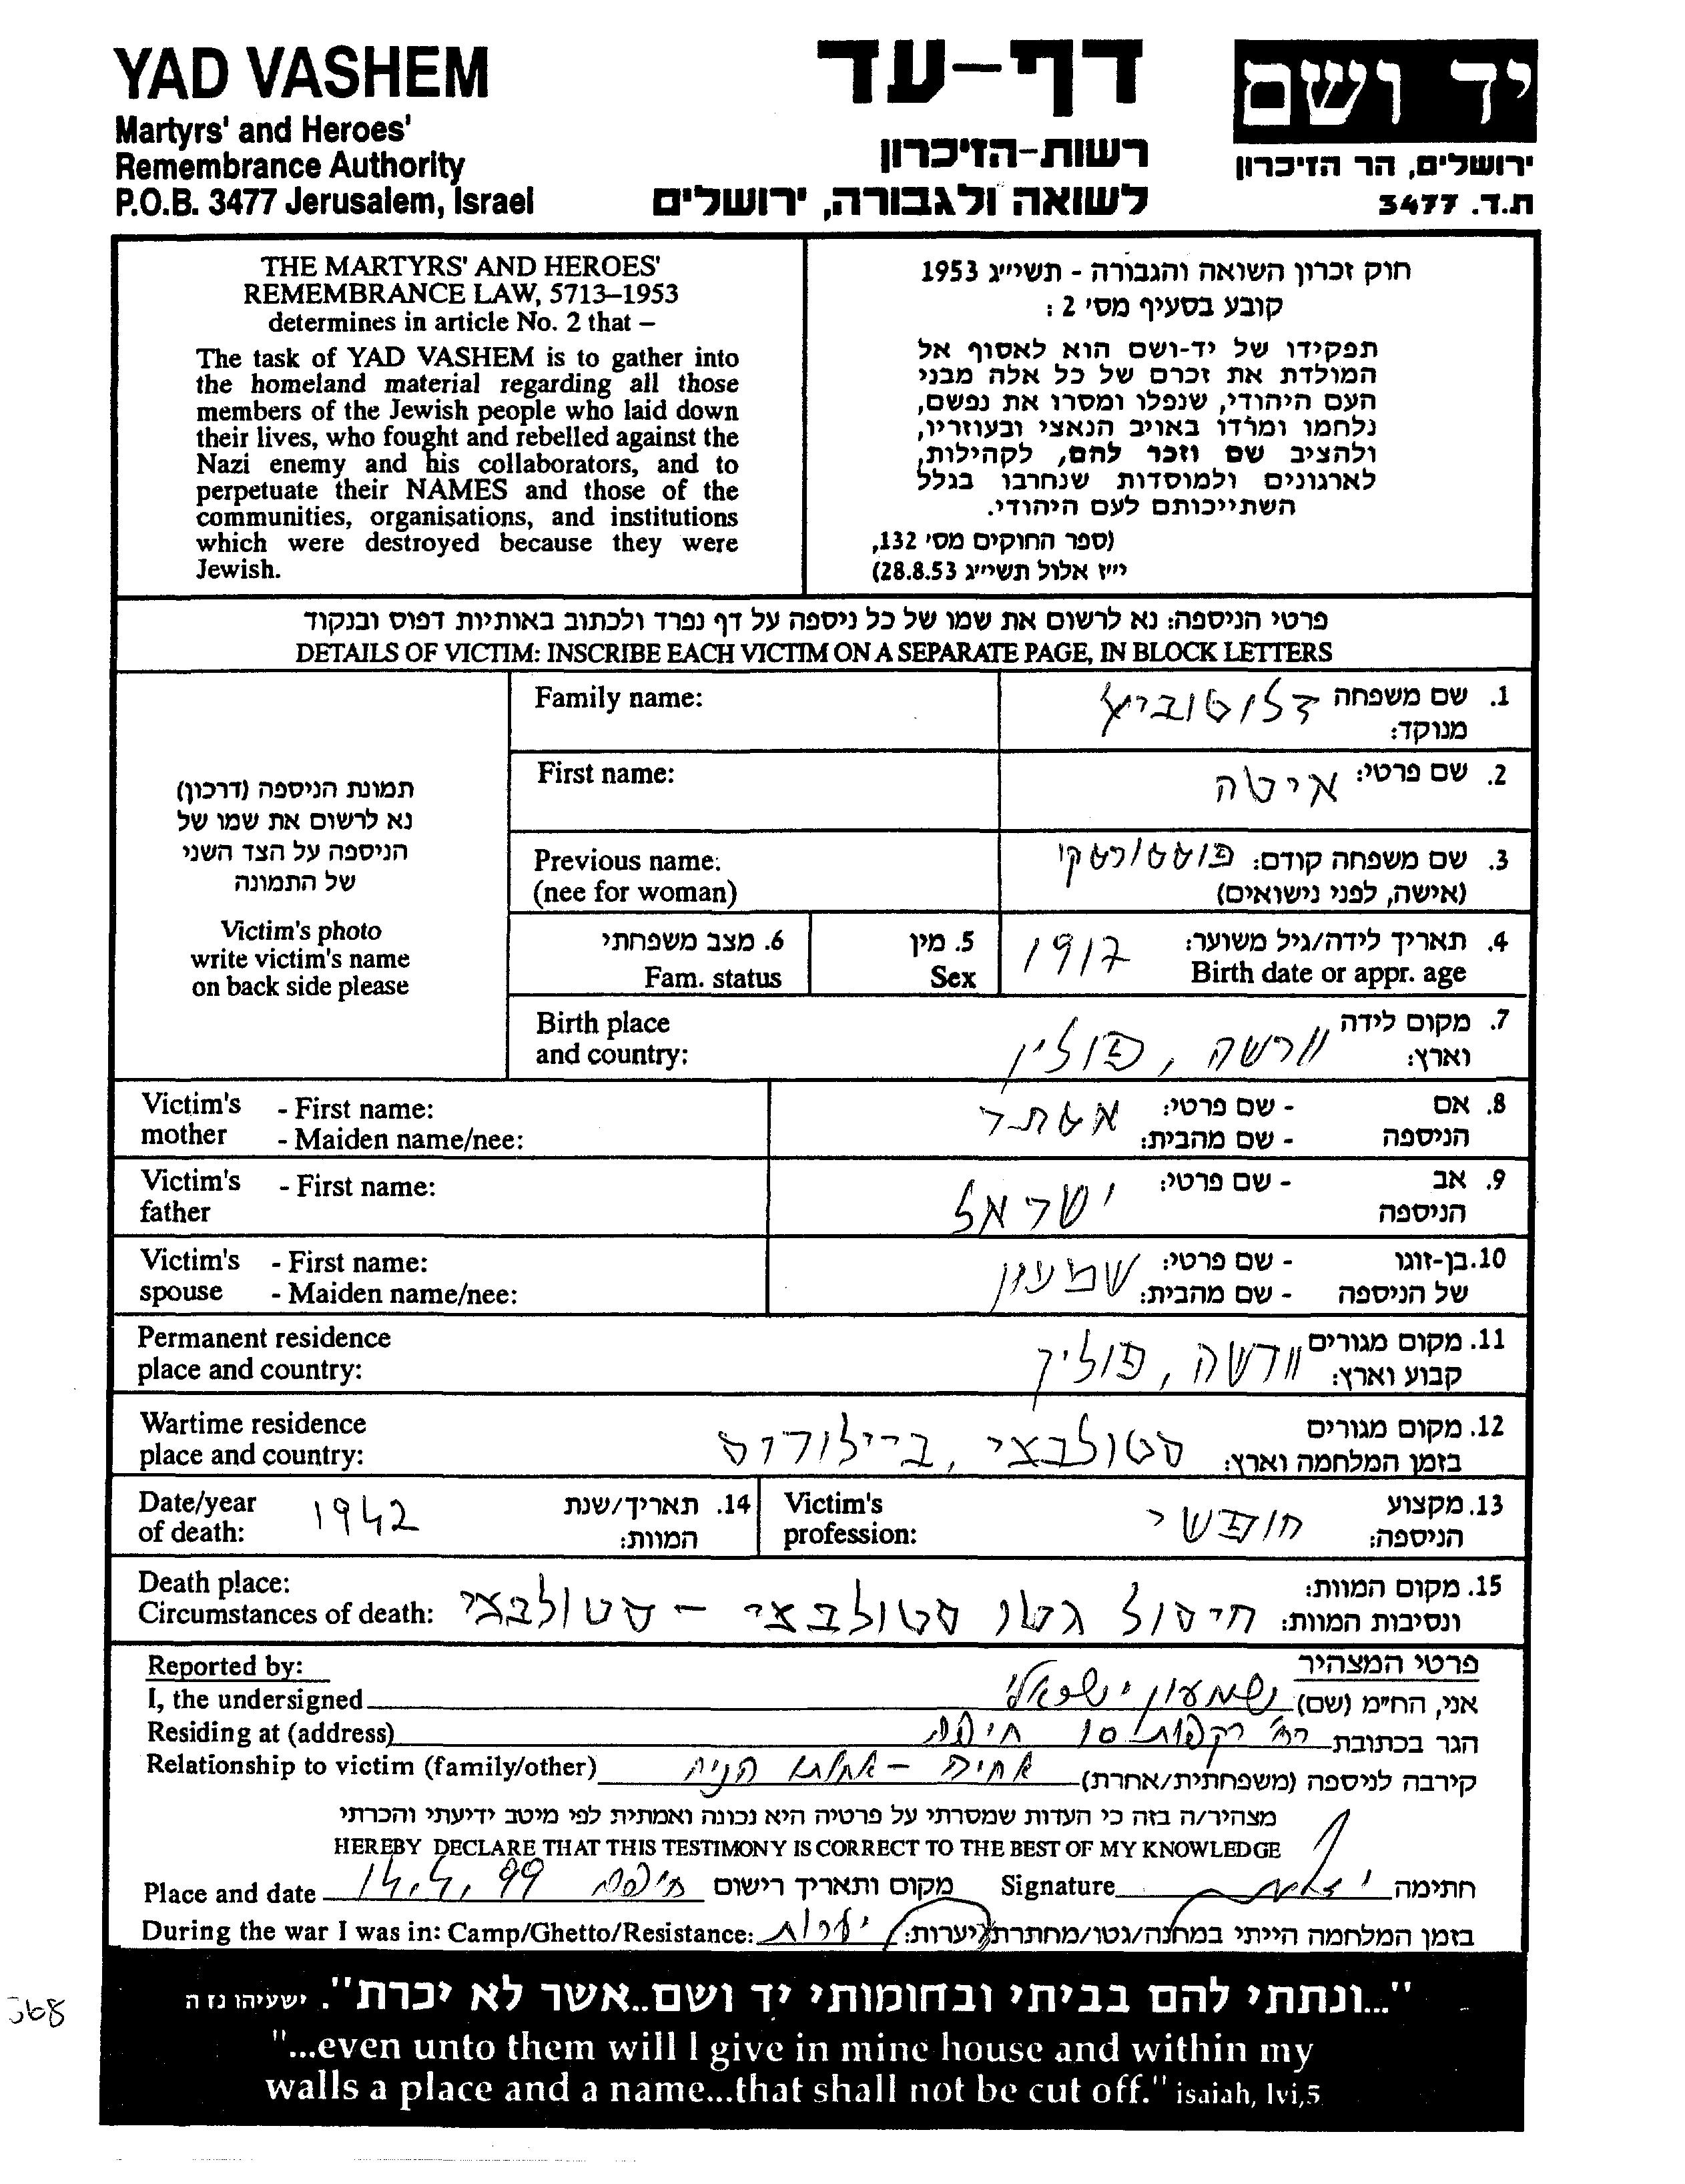 YAD VASHEM
Martyrs' and Heroes'
Remembrance Authority
P.O.B. 3477 Jerusalem, Israel
דף-עד
רשות-הזיכרון
לשואה ולגבורה, ירושלים
יד ושם
ירושלים, הר הזיכרון
ת.ד. 3477
THE MARTYRS' AND HEROES'
REMEMBRANCE LAW, 5713–1953
determines in article No. 2 that –
The task of YAD VASHEM is to gather into
the homeland material regarding all those
members of the Jewish people who laid down
their lives, who fought and rebelled against the
Nazi enemy and his collaborators, and to
perpetuate their NAMES and those of the
communities, organisations, and institutions
which were destroyed because they were
Jewish.
חוק זכרון השואה והגבורה - תשי״ג 1953
קובע בסעיף מס׳ 2 :
תפקידו של יד-ושם הוא לאסוף אל
המולדת את זכרם של כל אלה מבני
העם היהודי, שנפלו ומסרו את נפשם,
נלחמו ומרדו באויב הנאצי ובעוזריו,
ולהציב שם וזכר להם, לקהילות,
לארגונים ולמוסדות שנחרבו בגלל
השתייכותם לעם היהודי.
(ספר החוקים מס׳ 132,
י״ז אלול תשי״ג 28.8.53)
פרטי הניספה: נא לרשום את שמו של כל ניספה על דף נפרד ולכתוב באותיות דפוס ובנקוד
DETAILS OF VICTIM: INSCRIBE EACH VICTIM ON A SEPARATE PAGE, IN BLOCK LETTERS
תמונת הניספה (דרכון)
נא לרשום את שמו של
הניספה על הצד השני
של התמונה
Victim's photo
write victim's name
on back side please
1. שם משפחה
מנוקד:
Family name:
2. שם פרטי: איטה
First name:
3. שם משפחה קודם:
(אישה, לפני נישואים)
Previous name:
(nee for woman)
4. תאריך לידה/גיל משוער: 1917
Birth date or appr. age
5. מין
Sex
6. מצב משפחתי
Fam. status
7. מקום לידה
וארץ: וורשה, פולין
Birth place
and country:
8. אם - שם פרטי: אסתר
הניספה - שם מהבית:
Victim's - First name:
mother - Maiden name/nee:
9. אב - שם פרטי: ישראל
הניספה
Victim's - First name:
father
10. בן-זוגו - שם פרטי: שמעון
של הניספה - שם מהבית:
Victim's - First name:
spouse - Maiden name/nee:
11. מקום מגורים
קבוע וארץ: וורשה, פולין
Permanent residence
place and country:
12. מקום מגורים
בזמן המלחמה וארץ: סטולבצי, ביילורוס
Wartime residence
place and country:
13. מקצוע
הניספה: חופשי
Victim's
profession:
14. תאריך/שנת
המוות:
Date/year
of death: 1942
15. מקום המוות:
ונסיבות המוות: חיסול גטו סטולבצי - סטולבצי
Death place:
Circumstances of death:
פרטי המצהיר
Reported by:
אני, הח״מ (שם) שמעון ישראלי
I, the undersigned
הגר בכתובת רח׳ רקפות 10 חיפה
Residing at (address)
קירבה לניספה (משפחתית/אחרת)
Relationship to victim (family/other)
מצהיר/ה בזה כי העדות שמסרתי על פרטיה היא נכונה ואמתית לפי מיטב ידיעתי והכרתי
HEREBY DECLARE THAT THIS TESTIMONY IS CORRECT TO THE BEST OF MY KNOWLEDGE
Place and date 14.4.99 חיפה מקום ותאריך רישום Signature חתימה
בזמן המלחמה הייתי במחנה/גטו/מחתרת/יערות: יערות
During the war I was in: Camp/Ghetto/Resistance:
"...ונתתי להם בביתי ובחומותי יד ושם..אשר לא יכרת". ישעיהו נז ה
"...even unto them will I give in mine house and within my
walls a place and a name...that shall not be cut off." isaiah, lvi,5